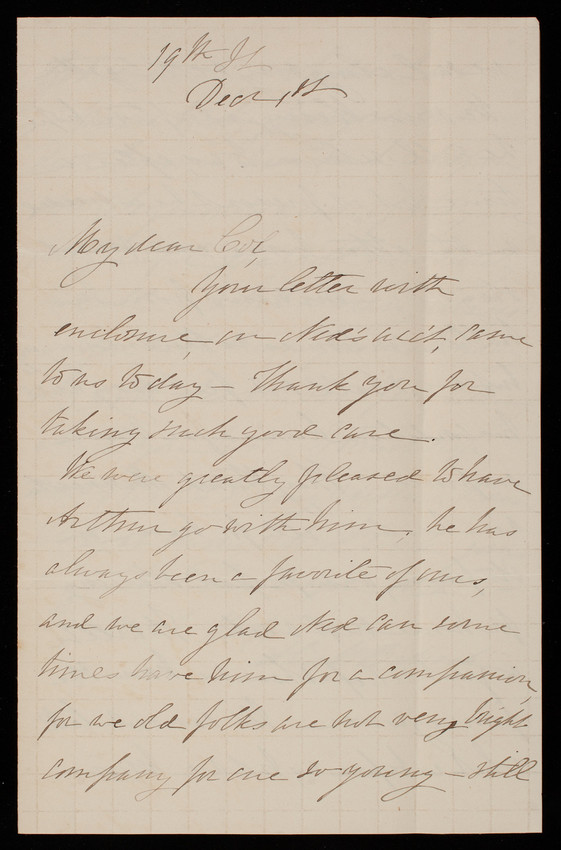 19th St
Decr 1st
My dear Col,
Your letter with
enclosure, on Ned's acct, came
to us today — Thank you for
taking such good care.
We were greatly pleased to have
Arthur go with him, he has
always been a favorite of ours,
and we are glad Ned can some
times have him for a companion,
for we old folks are not very bright
company for one so young — still